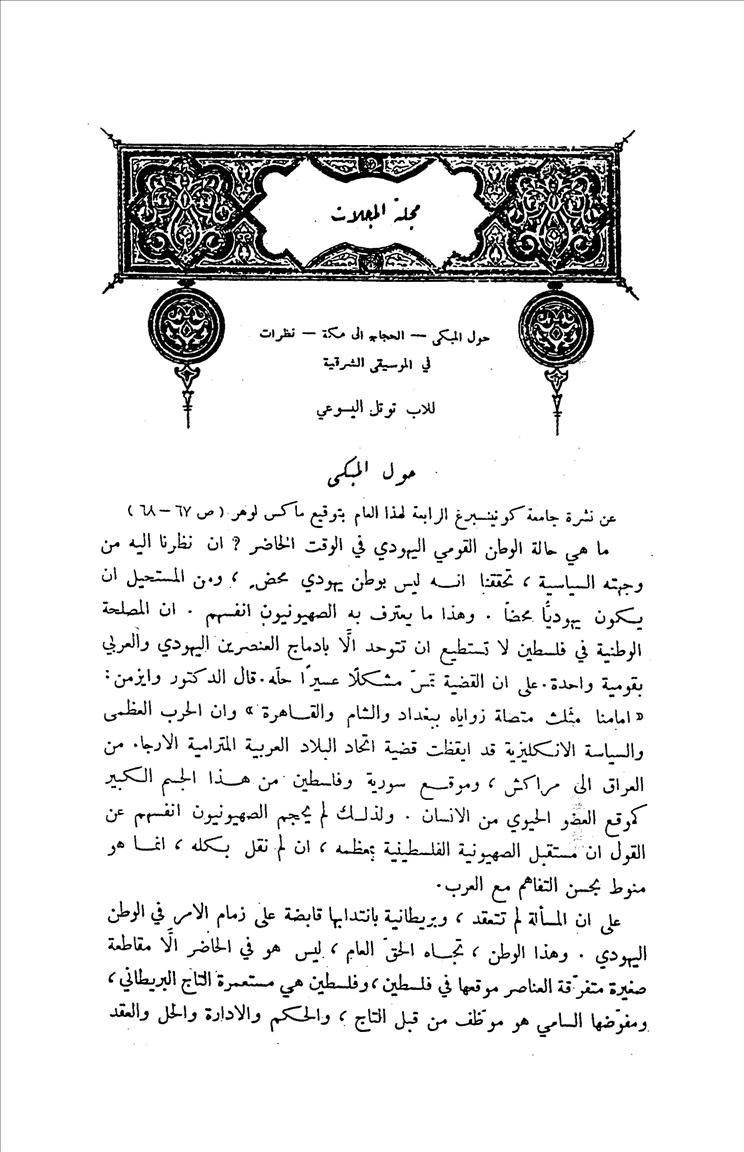 مجلة المجلات
حول المبكى — الحجاج الى مكة — نظرات
في الموسيقى الشرقية
للاب توتل اليسوعي
حول المبكى
عن نشرة جامعة كونيغسبرغ الرابعة لهذا العام بتوقيع ماكس لوهر ( ص ٦٧ – ٦٨ )
ما هي حالة الوطن القومي اليهودي في الوقت الحاضر ؟ ان نظرنا اليه من
وجهته السياسية ، تحققنا انه ليس بوطن يهودي محض ، ومن المستحيل ان
يكون يهوديًا محضاً . وهذا ما يعترف به الصهيونيون انفسهم . ان المصلحة
الوطنية في فلسطين لا تستطيع ان تتوحد الَّا بادماج العنصرين اليهودي والعربي
بقومية واحدة . على ان القضية تمسّ مشكلًا عسيرًا حلّه . قال الدكتور وايزمن :
« امامنا مثلث متصلة زواياه ببغداد والشام والقاهرة » وان الحرب العظمى
والسياسة الانكليزية قد ايقظت قضية اتحاد البلاد العربية المترامية الارجاء من
العراق الى مراكش ، وموقع سورية وفلسطين من هذا الجسم الكبير
كموقع العضو الحيوي من الانسان . ولذلك لم يحجم الصهيونيون انفسهم عن
القول ان مستقبل الصهيونية الفلسطينية بمعظمه ، ان لم نقل بكله ، انما هو
منوط بحسن التفاهم مع العرب .
على ان المسألة لم تتعقد ، وبريطانية بانتدابها قابضة على زمام الامر في الوطن
اليهودي . وهذا الوطن ، تجاه الحقّ العام ، ليس هو في الحاضر الَّا مقاطعة
صغيرة متفرّقة العناصر موقعها في فلسطين ، وفلسطين هي مستعمرة التاج البريطاني ،
ومفوّضها السامي هو موظف من قبل التاج ، والحكم والادارة والحل والعقد